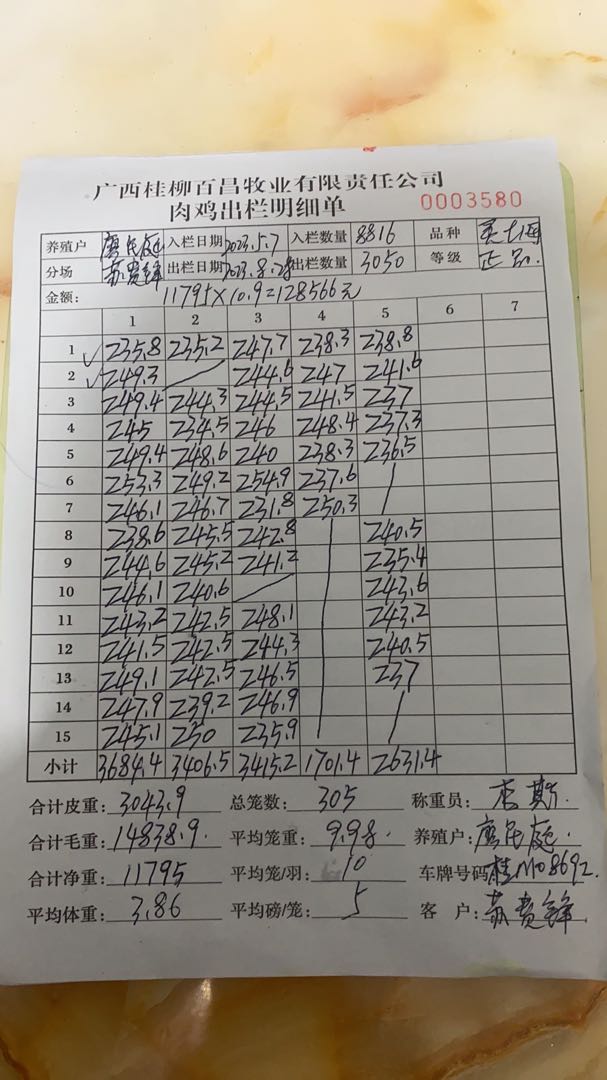 广西桂柳百昌牧业有限责任公司
肉鸡出栏明细单 0003580
养殖户 廖民庭 入栏日期 2023.5.7 入栏数量 8816 品种
分场 苏贵锋 出栏日期 2023.8.28 出栏数量 3050 等级 正品.
金额: 11795×10.9=128566元
1 2 3 4 5 6 7
1 ✓ 235.8 235.2 247.7 238.3 238.8
2 ✓ 249.3 / 244.6 247 241.6
3 249.4 244.3 244.5 241.5 237
4 245 234.5 246 248.4 237.3
5 249.4 248.6 240 238.3 236.5
6 253.3 249.2 254.9 237.6 /
7 246.1 246.7 231.8 250.3
8 238.6 245.5 242.8 240.5
9 244.6 245.2 241.2 235.4
10 246.1 240.6 / 243.6
11 243.2 242.5 248.1 243.2
12 241.5 242.5 244.3 240.5
13 249.1 242.5 246.5 237
14 247.9 239.2 246.9 /
15 245.1 250 235.9
小计 3684.4 3406.5 3415.2 1701.4 2631.4
合计皮重: 3043.9 总笼数: 305 称重员:
合计毛重: 14838.9. 平均笼重: 9.98. 养殖户: 廖民庭.
合计净重: 11795 平均笼/羽: 10 车牌号码: 桂M08692
平均体重: 3.86 平均磅/笼: 5 客 户: 苏贵锋